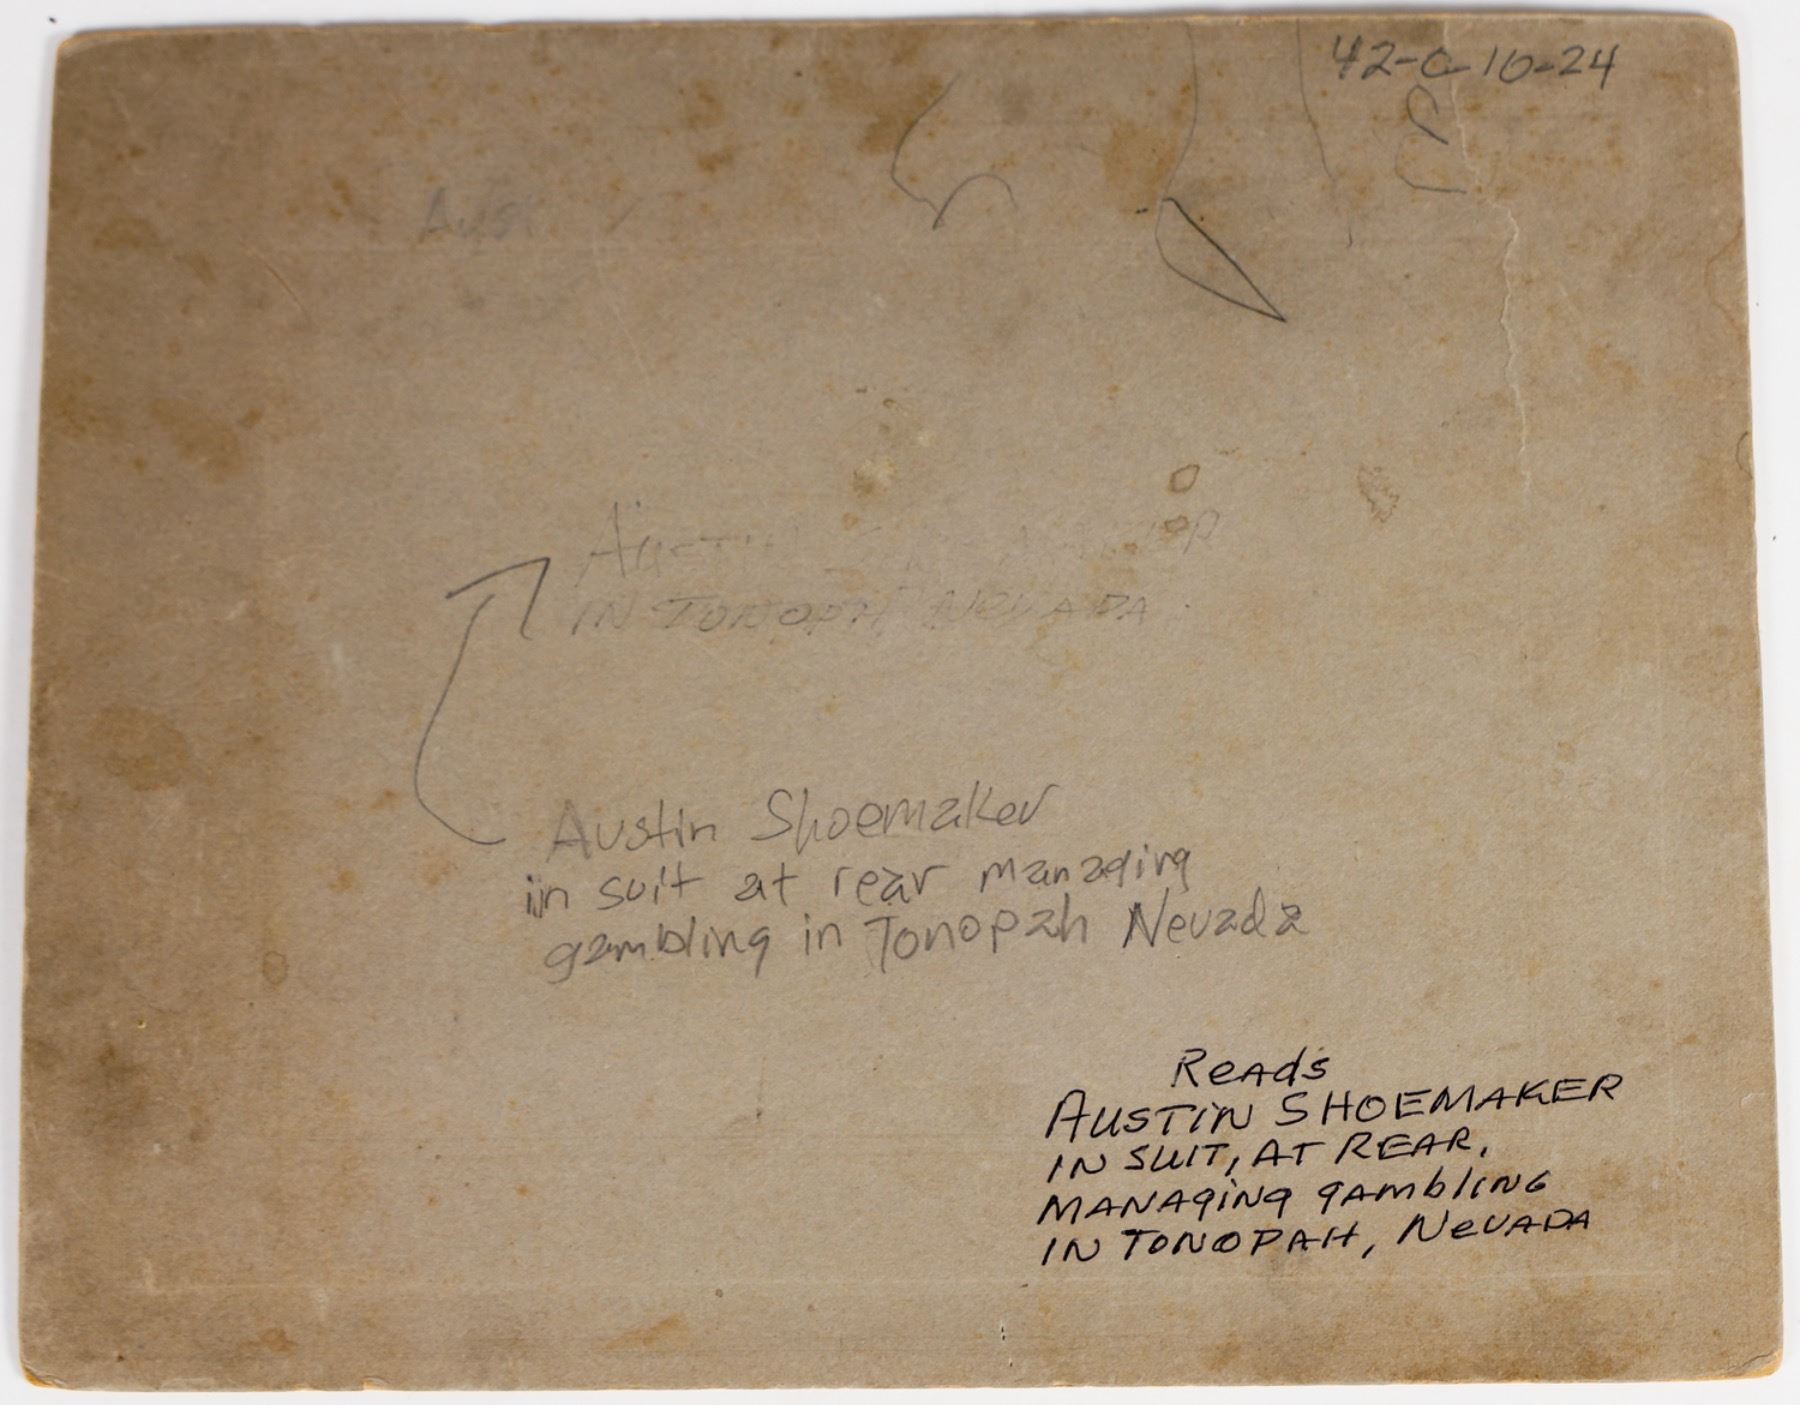 42-C-10-24
Aust
AUSTIN
IN TONOPAH NEVADA
Austin Shoemaker
in suit at rear managing
gambling in Tonopah Nevada
Reads
AUSTIN SHOEMAKER
IN SUIT, AT REAR,
MANAgiNg gAmbliNG
IN TONOPAH, NeVADA